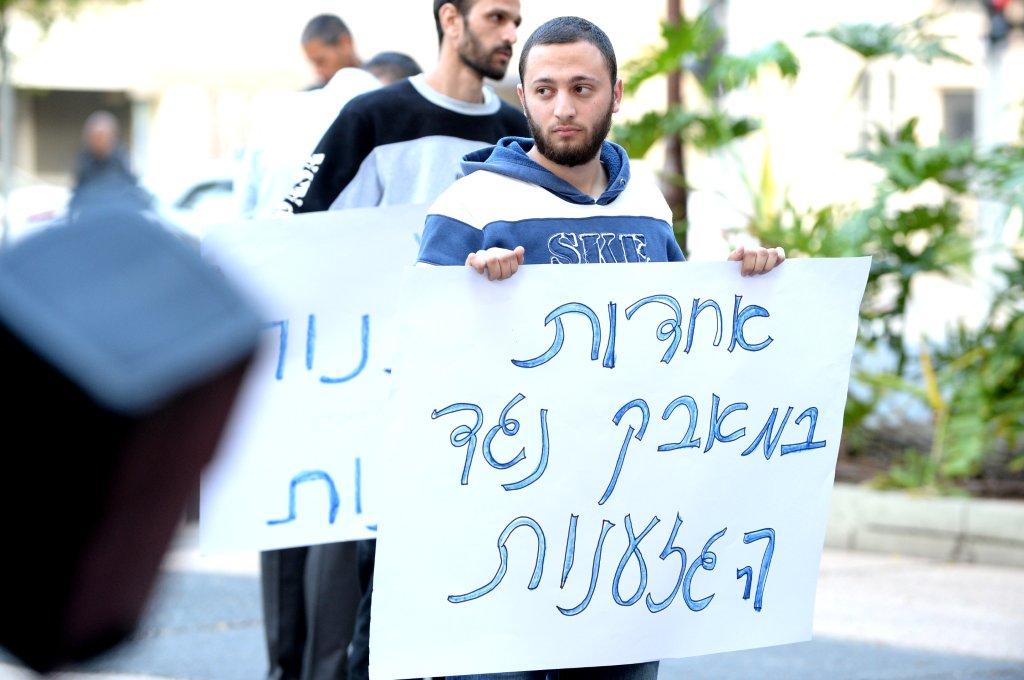 SKE
אחדות
במאבק נגד
הגזענות